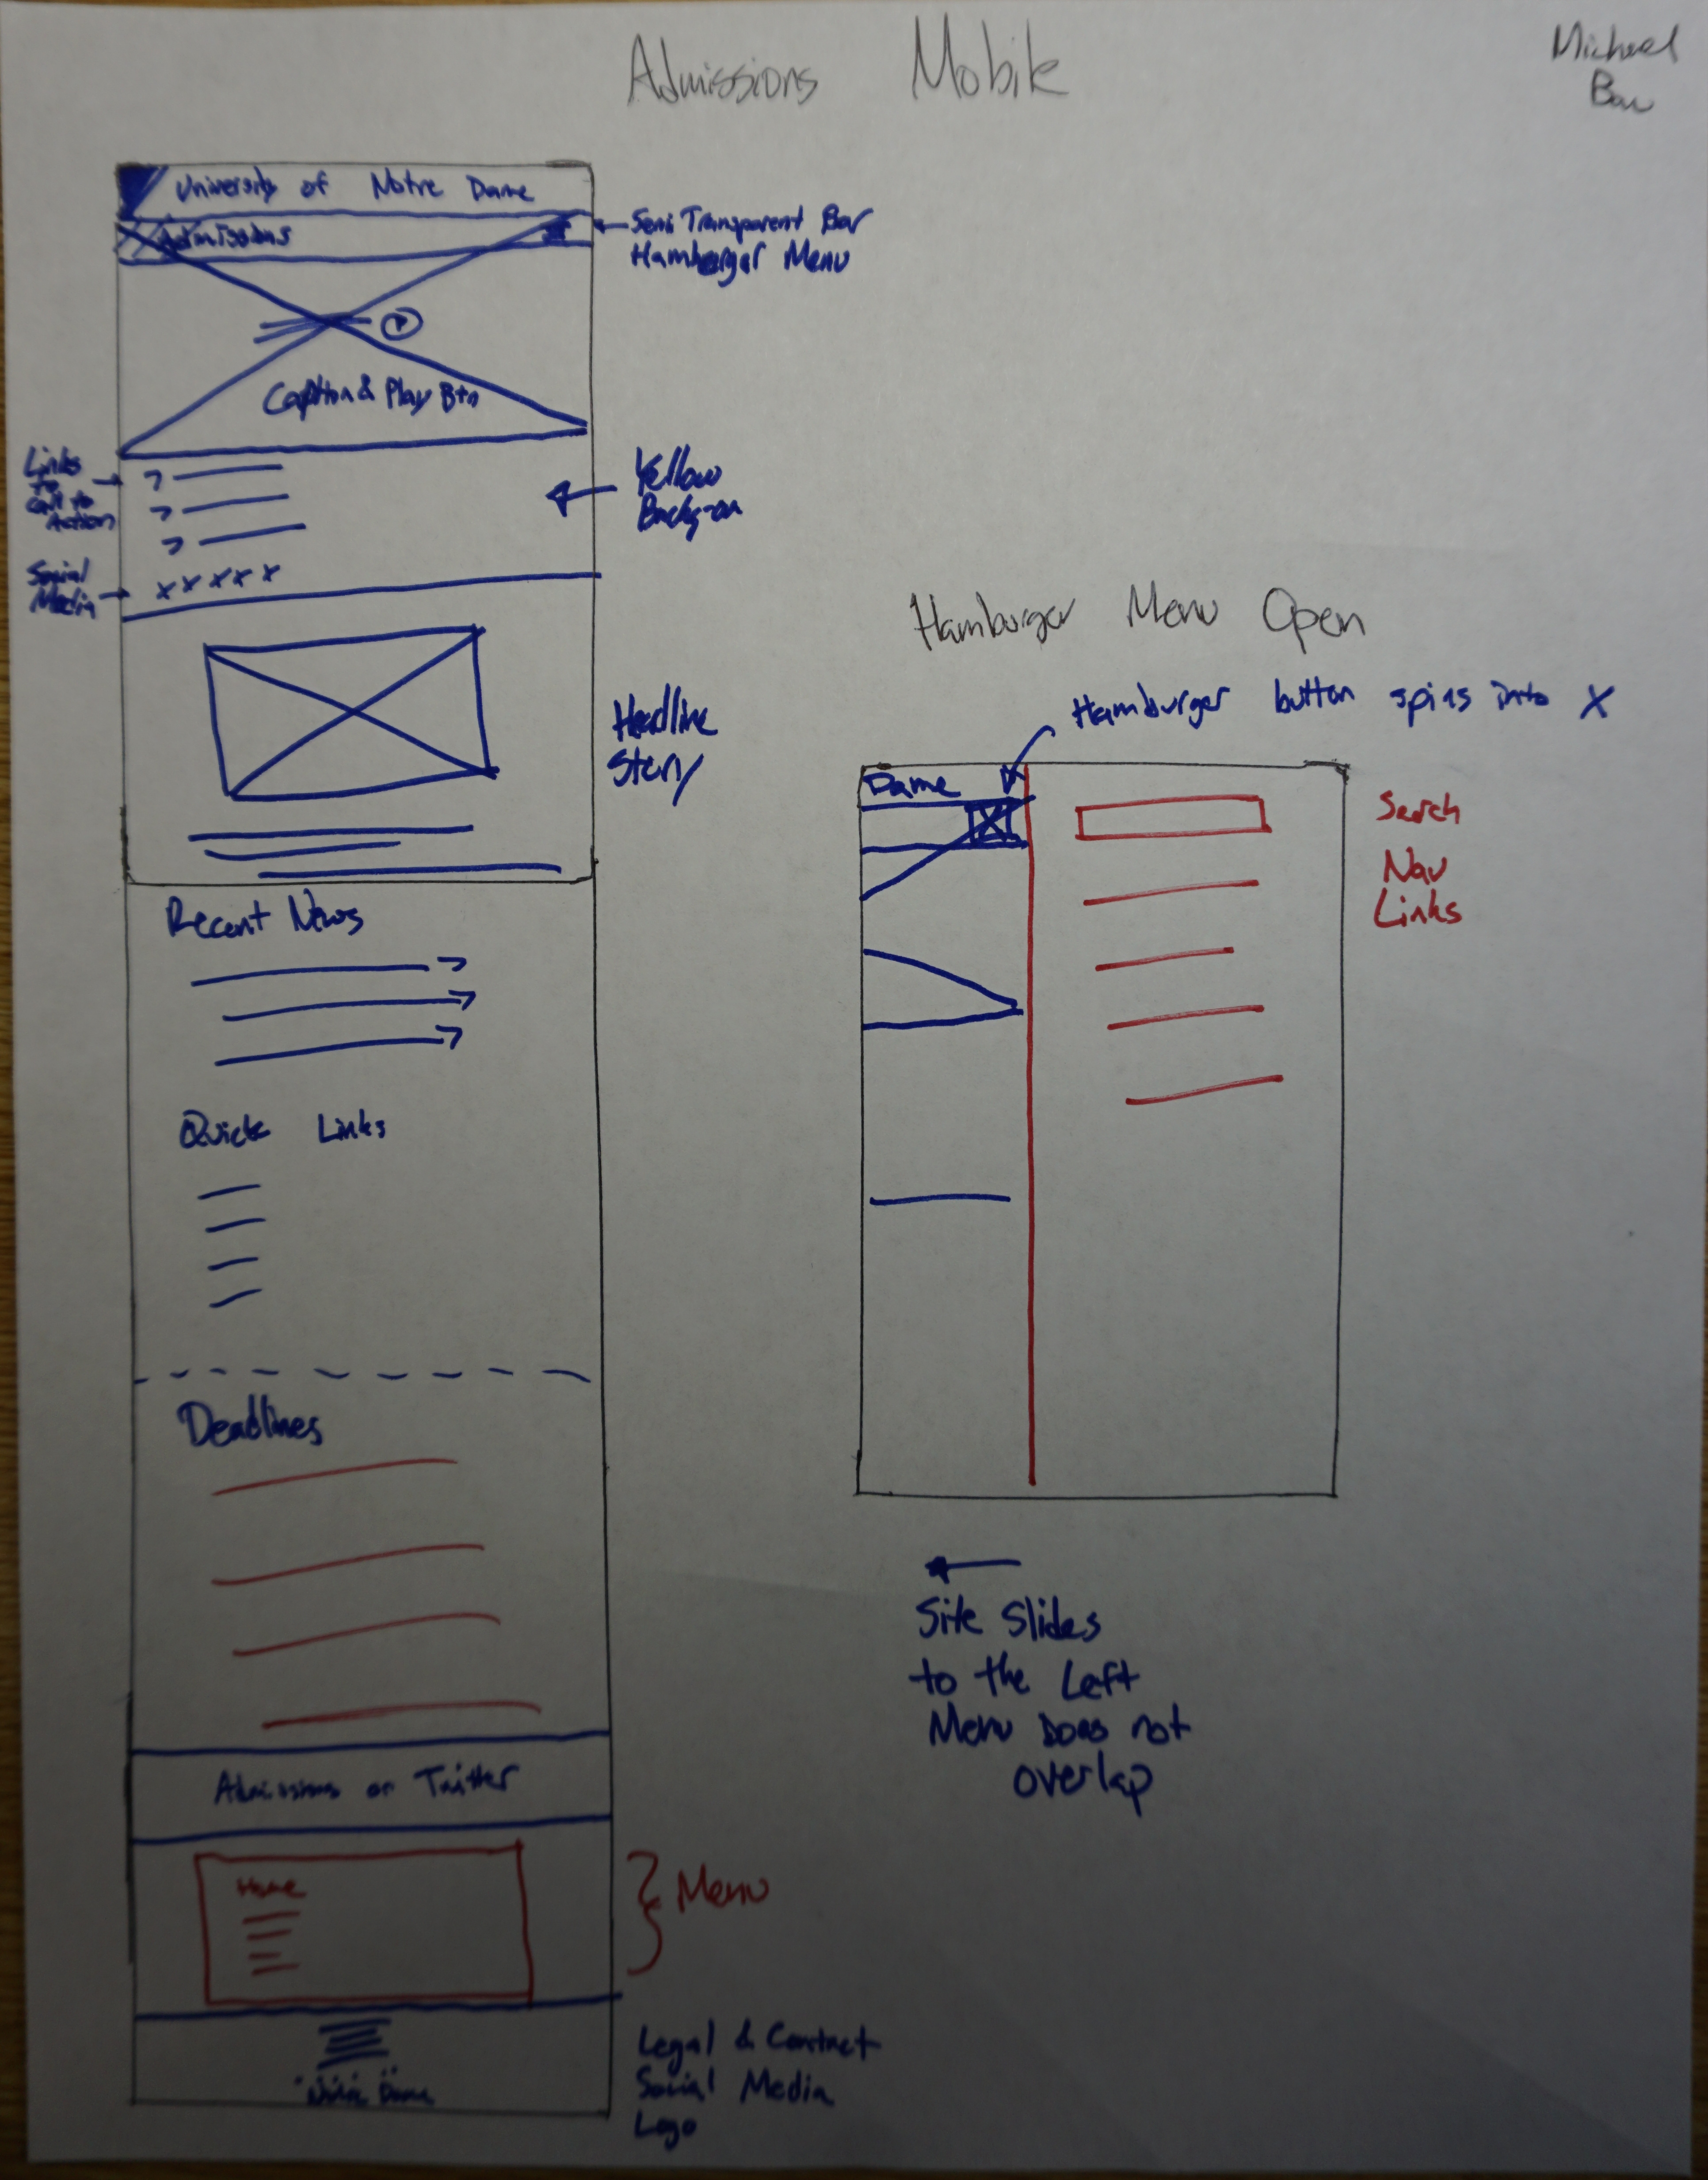 Admissions Mobile
Michael
University of Notre Dame
Admissions
Semi Transparent Bar
Hamburger Menu
Caption & Play Btn
Links
to
Call to
Action
Yellow
Social
Media
Headline
Story
Recent News
Quick Links
Deadlines
Admissions on Twitter
Home
Menu
Notre Dame
Legal & Contact
Social Media
Logo
Hamburger Menu Open
Hamburger button spins into X
Dame
Search
Nav
Links
Site Slides
to the Left
Menu Does not
overlap